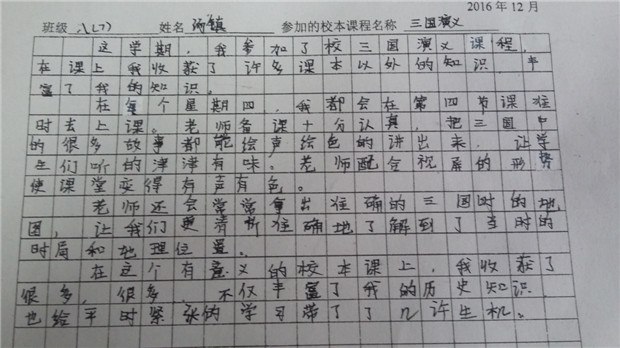 2016年12月
班级 八(7) 姓名 参加的校本课程名称 三国演义
这学期，我参加了校三国演义课程，
在课上我收获了许多课本以外的知识，丰
富了我的知识。
在每个星期四，我都会在第四节课准
时去上课。老师备课十分认真，把三国中
的很多故事都能绘声绘色的讲出来，让学
生们听的津津有味。老师配合视屏的形势
使课堂变得有声有色。
老师还会常常拿出准确的三国时的地
图，让我们更清晰准确地了解到了当时的
时局和地理位置。
在这个有意义的校本课上，我收获了
很多，很多，不仅丰富了我的历史知识，
也给平时紧张的学习带了了几许生机。